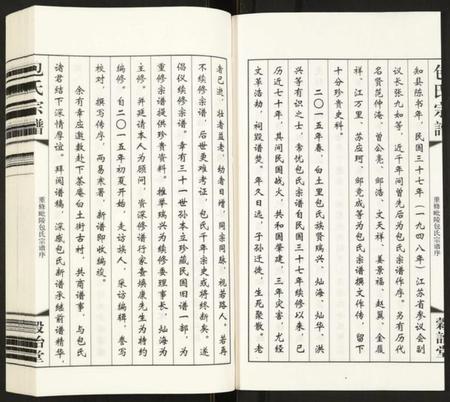 包氏宗譜
重修毗陵包氏宗谱序
穀詒堂
知县陈书年，民国三十七年（一九四八年）江苏省参议会副
议长张九如等，近千年间曾先后为包氏宗谱作序。另有历代
名贤范仲淹、曾公亮、邹浩、文天祥、姜景福、赵翼、金履
祥、江万里、苏应珂、邹竞成等为包氏宗谱撰文作传，留下
十分珍贵史料。
二〇一五年春，白土里包氏族贤瑞兴、灿海、灿华、洪
兴等有识之士，常忧包氏宗谱自民国三十七年续修以来，已
历近七十年，其间民国战火、共和国肇建，三年灾害，尤经
文革浩劫，祠毁谱焚。年久日远，子孙迁徙，生死聚散。老
者已逝，壮者益老，幼者日增，同宗同脉，视若路人。若再
不续修宗谱，后世更难考证，包氏千年宗史或将终断矣。遂
倡仪续修宗谱。幸有三十一世孙本立珍藏民国旧谱一部，为
重修宗谱提供珍贵资料。推举瑞兴为续修委理事长，灿海为
主修。并延请本人为顾问，资深修谱行家查焕康先生为特约
编修。自二〇一五年初夏开始，走访族人，采访编辑，誊写
校对，撰写传序，两易寒暑，新谱即收编竣。
余有幸应邀数赴下茶庵白土街古村，共商谱事，与包氏
诸君结下深情厚谊。拜阅谱稿，深感包氏新谱承继前谱精华，
包氏宗譜
重修毗陵包氏宗谱序
穀詒堂